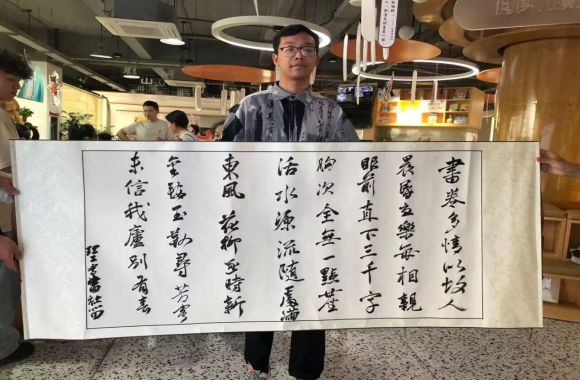 書卷多情似故人
晨昏憂樂每相親
眼前直下三千字
胸次全無一點塵
活水源流隨處滿
東風花柳逐時新
金鞍玉勒尋芳客
未信我廬別有春